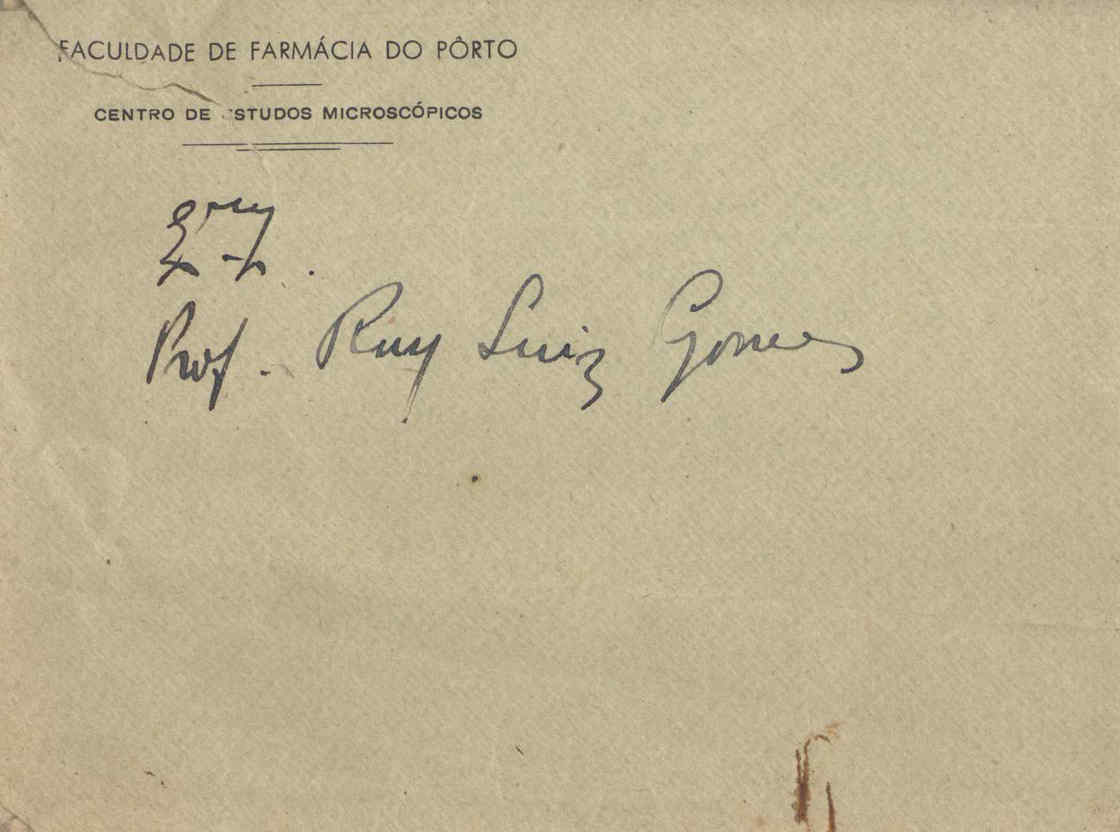 FACULDADE DE FARMÁCIA DO PÔRTO
CENTRO DE ESTUDOS MICROSCÓPICOS
Prof. Ruy Luiz Gomes